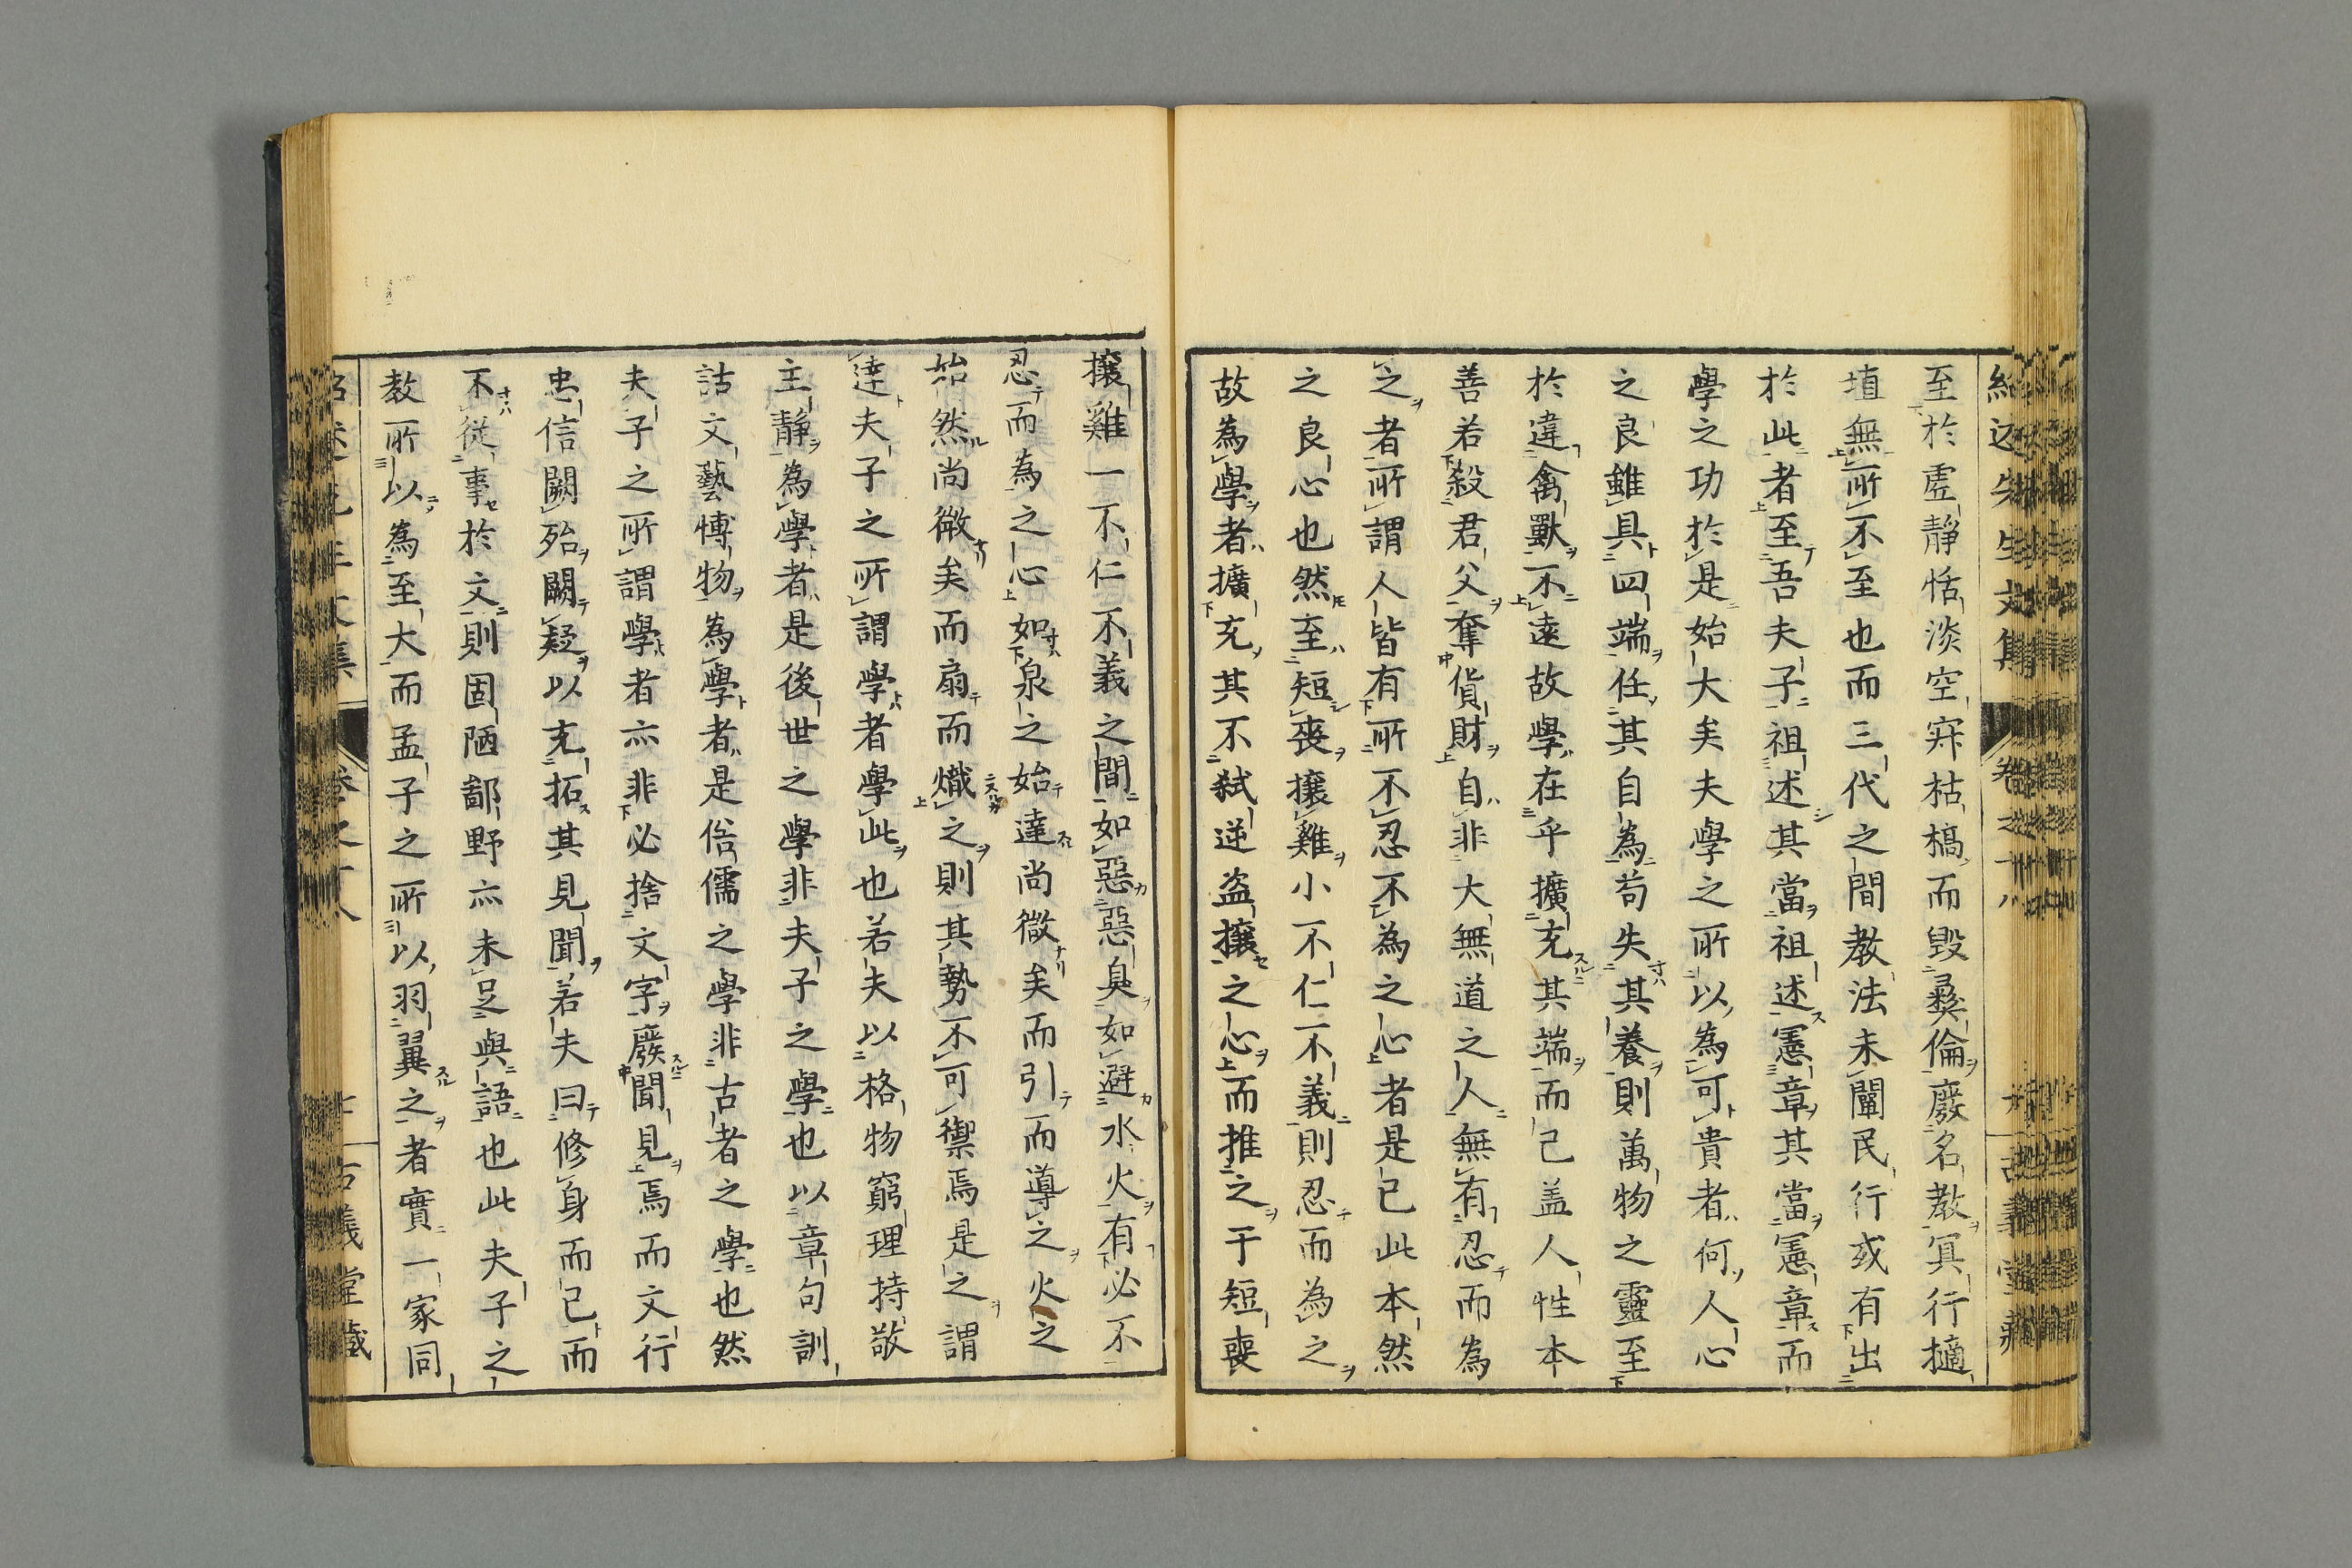 紹述先生文集 卷之十八 古義堂藏
至於虛靜恬淡空寂枯槁而毀彛倫廢名教冥行擿
埴無所不至也而三代之間教法未闡民行或有出
於此者至吾夫子祖述其當祖述憲章其當憲章而
學之功於是始大矣夫學之所以為可貴者何人心
之良雖具四端任其自為苟失其養則萬物之靈至
於違禽獸不遠故學在乎擴充其端而已盖人性本
善若殺君父奪貨財自非大無道之人無有忍而為
之者所謂人皆有所不忍不為之心者是已此本然
之良心也然至短喪攘雞小不仁不義則忍而為之
故為學者擴充其不弑逆盗攘之心而推之于短喪
攘雞一不仁不義之間如惡惡臭如避水火有必不
忍而為之心如泉之始達尚微矣而引而導之火之
始然尚微矣而扇而熾之則其勢不可禦焉是之謂
達夫子之所謂學者學此也若夫以格物窮理持敬
主靜為學者是後世之學非夫子之學也以章句訓
詁文藝博物為學者是俗儒之學非古者之學也然
夫子之所謂學者亦非必捨文字廢聞見焉而文行
忠信闕殆闕疑以充拓其見聞若夫曰修身而已而
不從事於文則固陋鄙野亦未足與語也此夫子之
教所以為至大而孟子之所以羽翼之者實一家同
古義堂藏